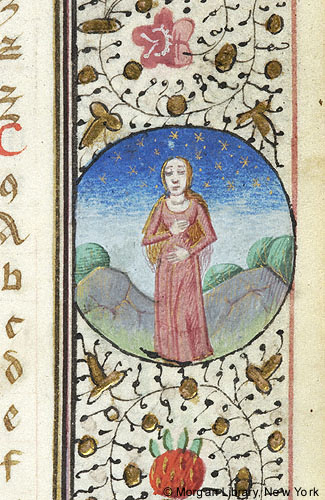 z
z
C
9
A
b
c
d
e
f
© Morgan Library, New York